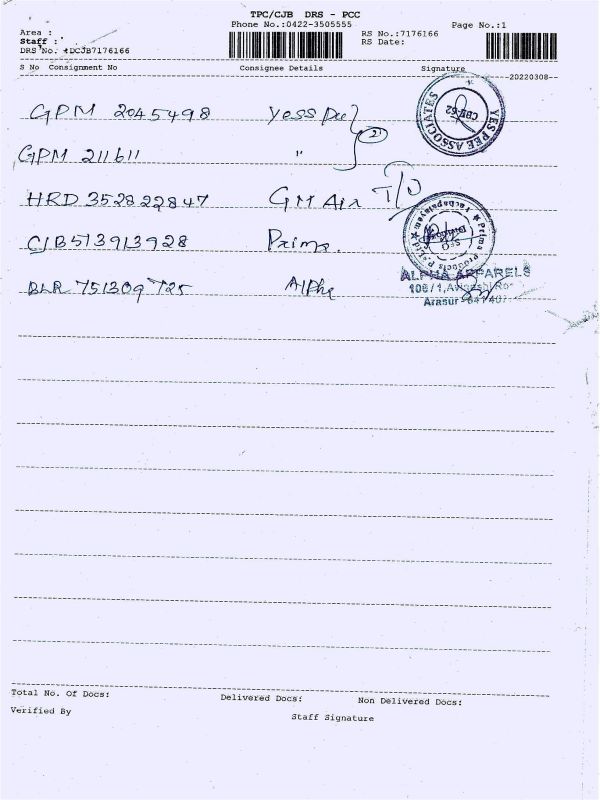 TPC/CJB DRS - PCC
Phone No.:0422-3505555
Page No.:1
Area :
RS No.:7176166
Staff :
RS Date:
DRS No. *DCJB7176166
S No Consignment No Consignee Details Signature
20220308
GPM 2045498 Yess Pee
2
YES PEE ASSOCIATES
CBE-62
GPM 211611 "
HRD 352822847 GM Air T/O
CJB513913928 Prima.
Prima Products P Ltd
BLR 751309725 Alpha
ALPHA APPARELS
106/1, Avinashi Ro
Arasur
Total No. Of Docs: Delivered Docs: Non Delivered Docs:
Verified By Staff Signature